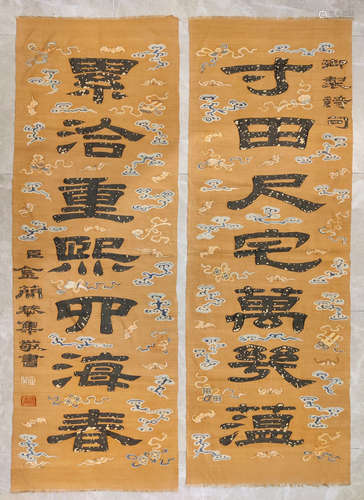 御製詩句
寸田尺宅萬㷼薀
累洽重熙卯海春
臣金簡恭集敬書